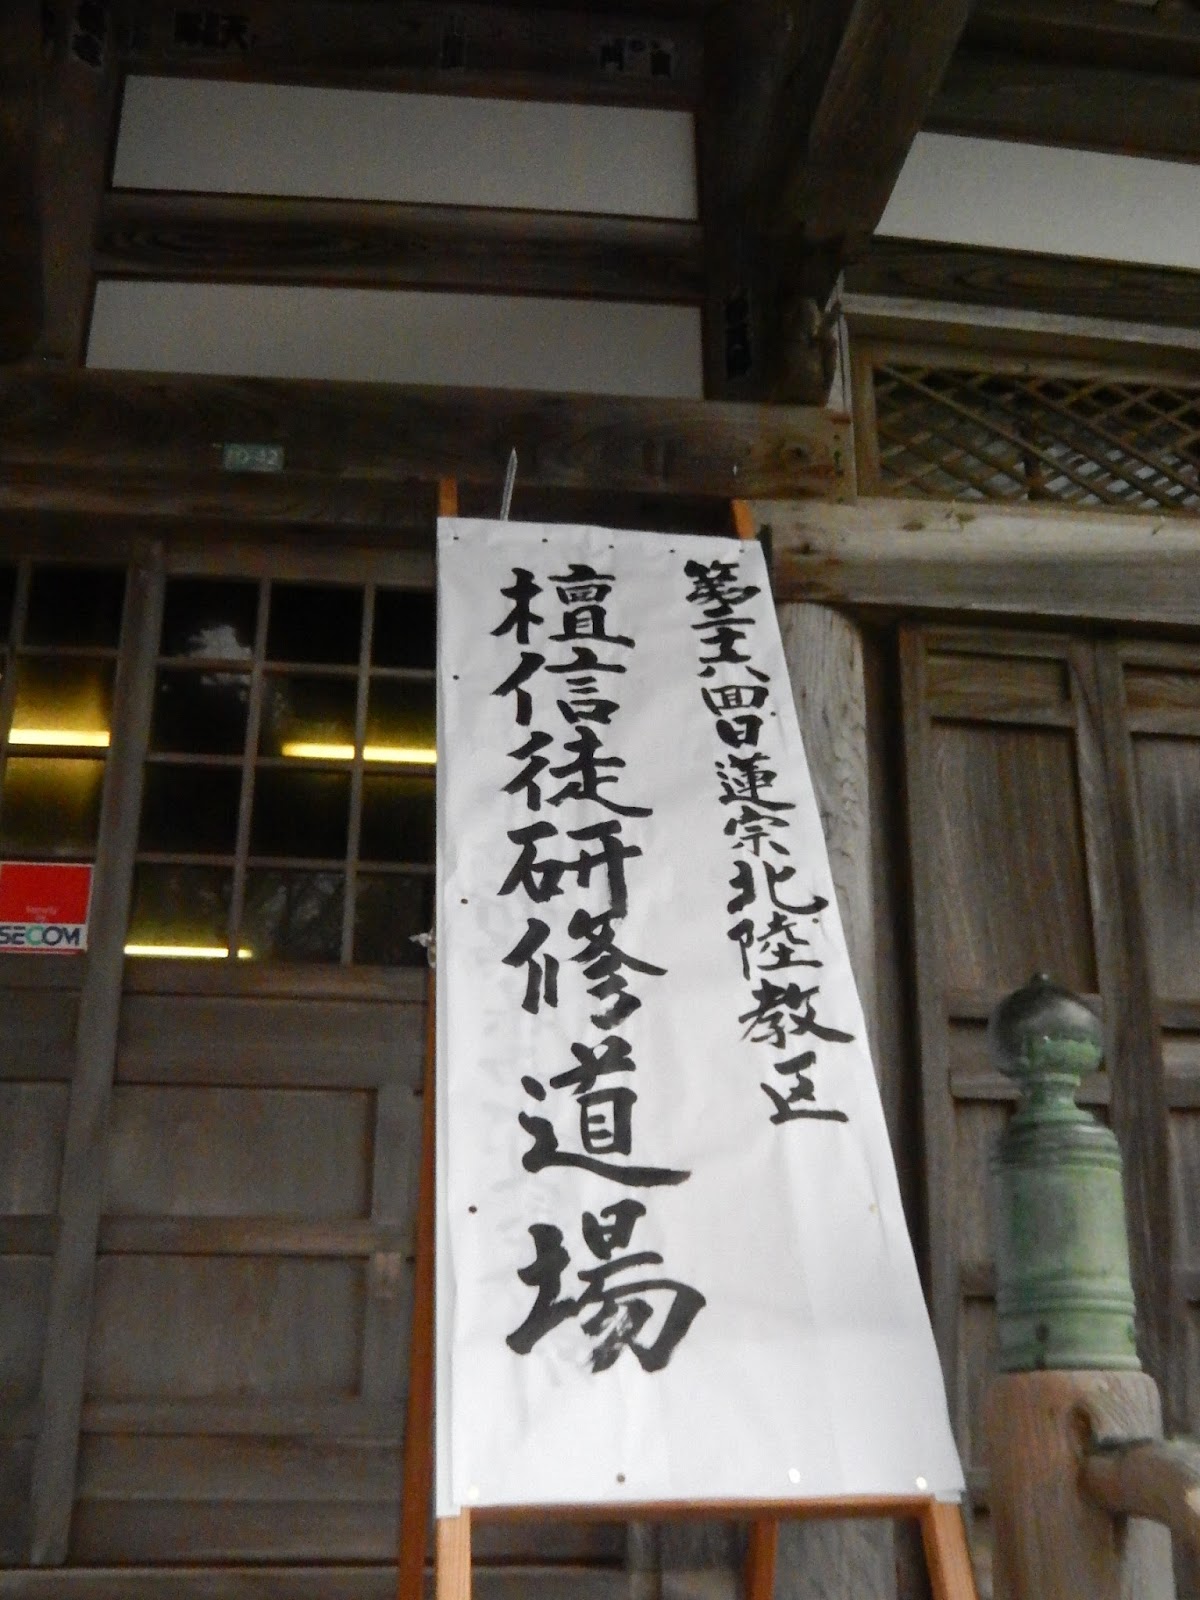 第二十八回日蓮宗北陸教区
檀信徒研修道場
SECOM